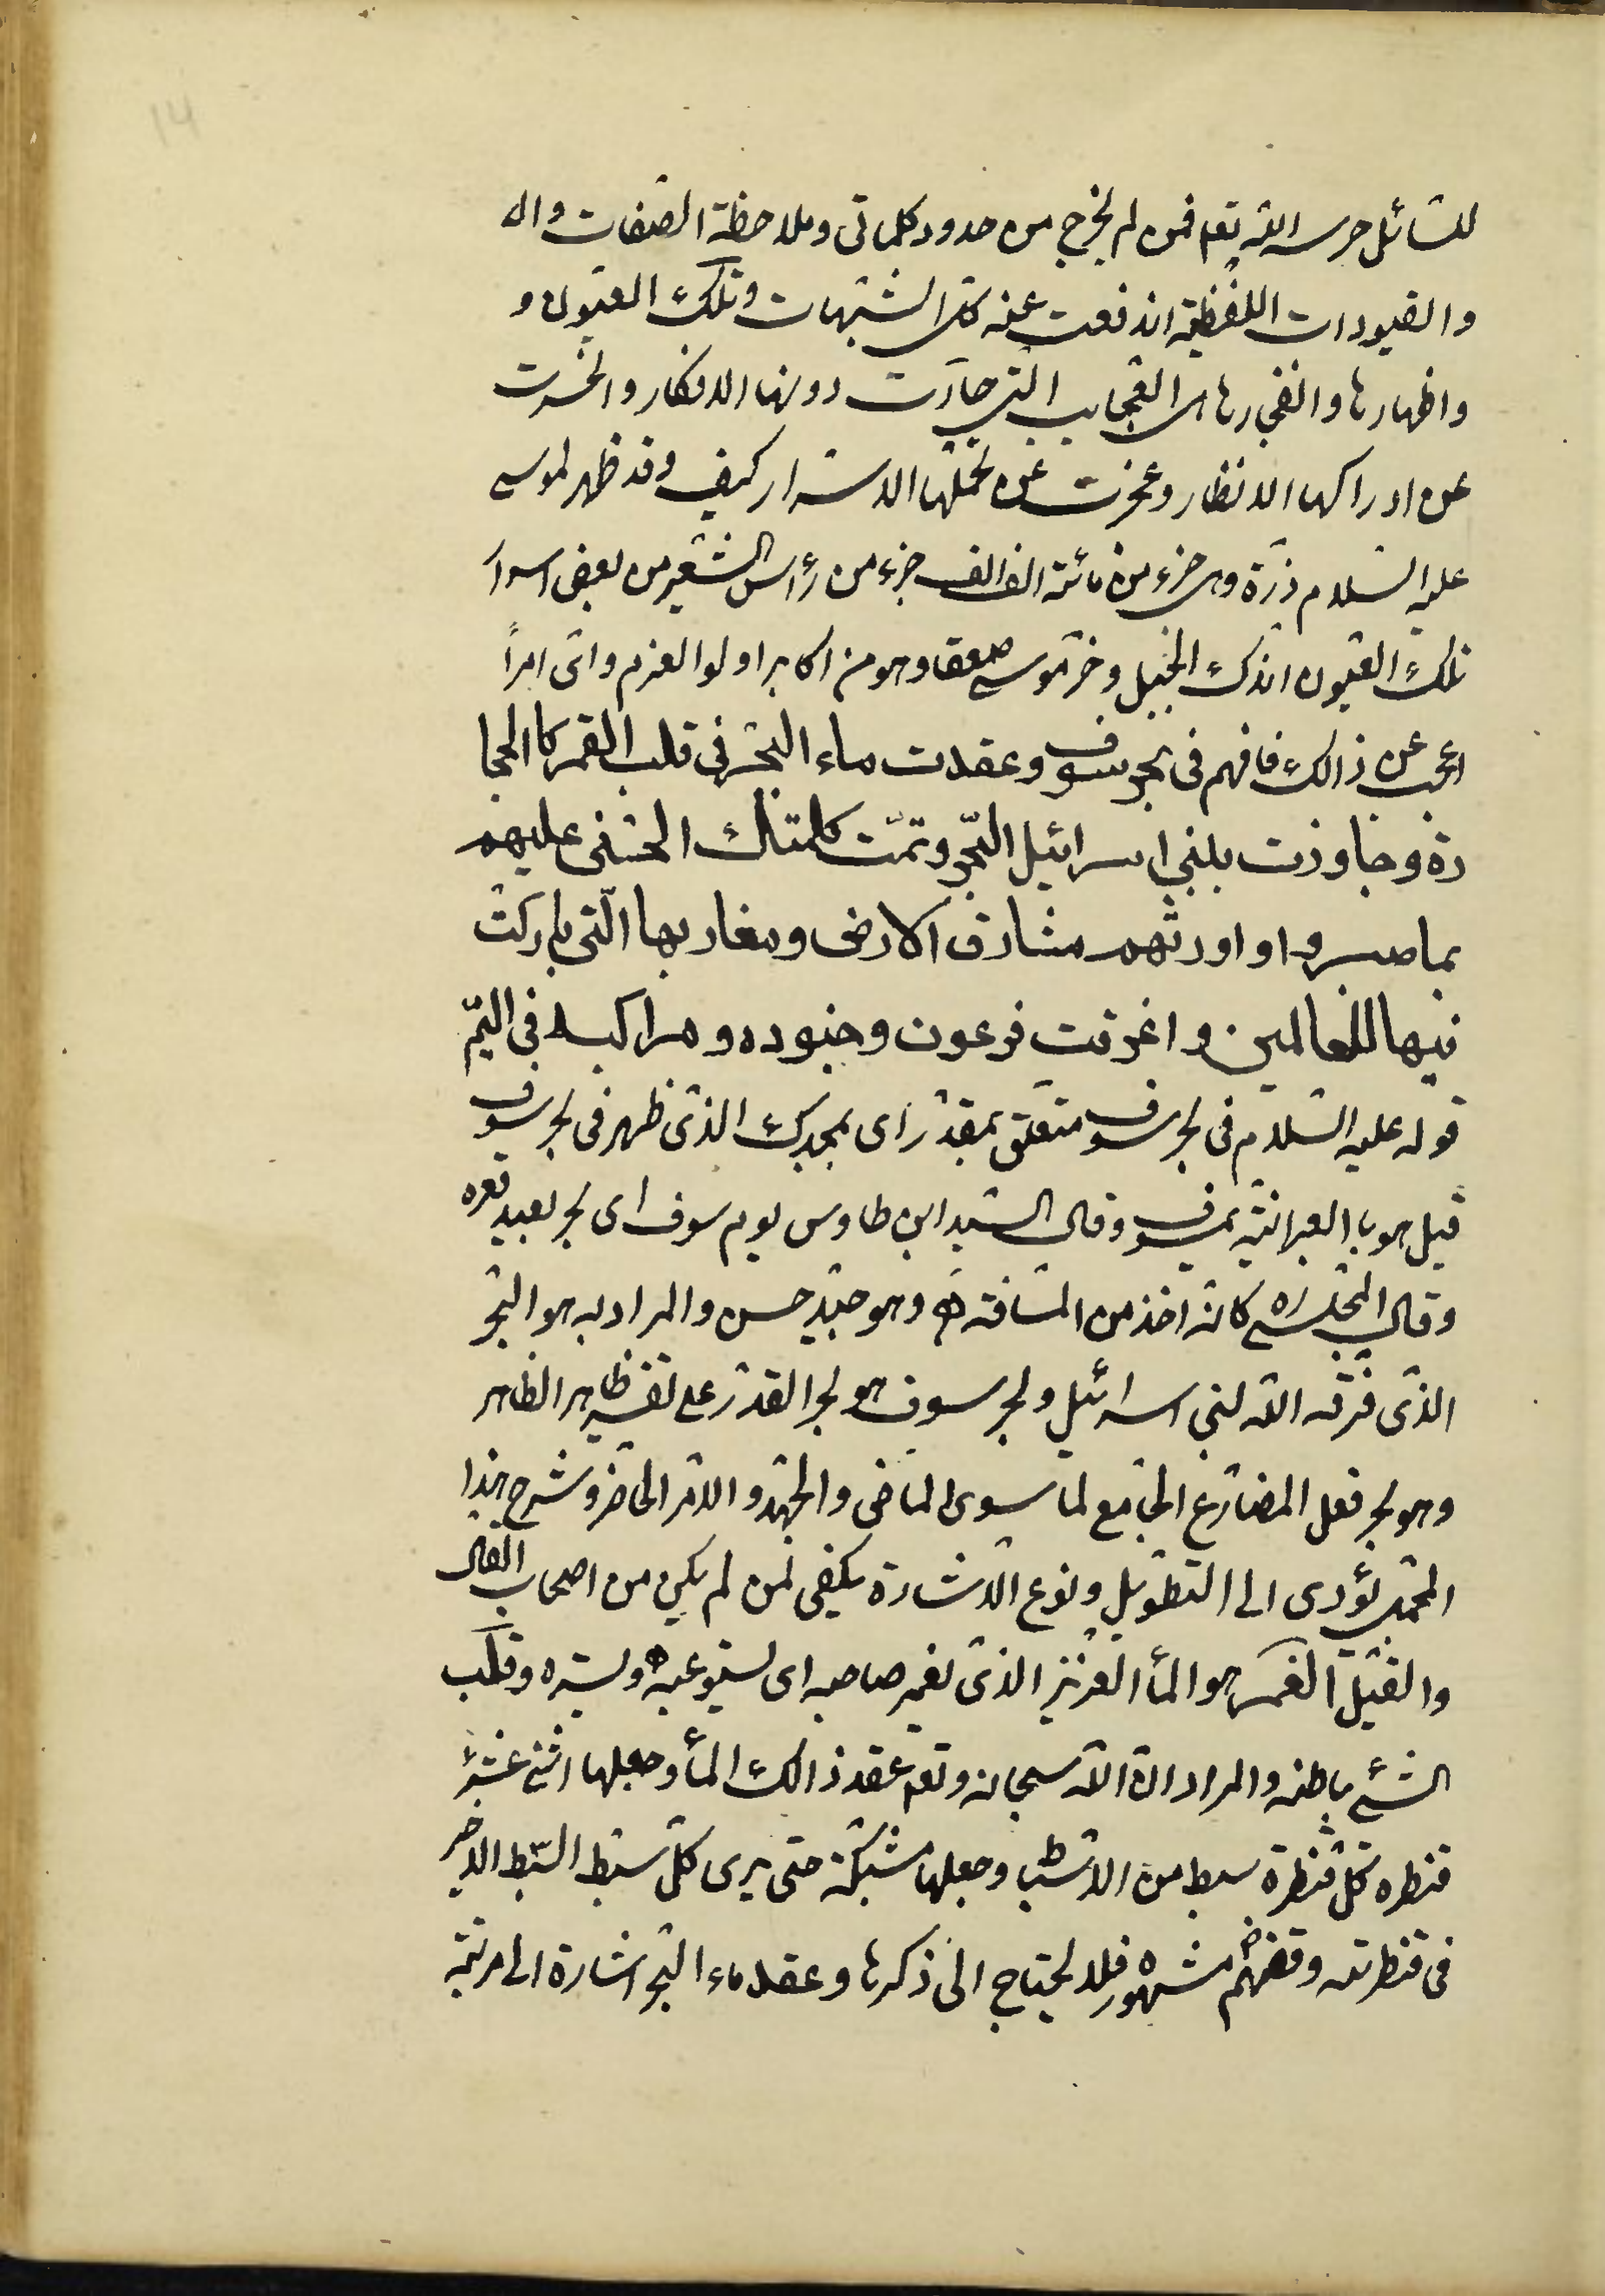 للسائل حرسه الله تعم فمن لم يخرج من حدود كلماتى وملاحظة الصفات وال
والقيودات اللفظية اندفعت عنه كل الشبهات وتلك العيون و
واظهارها وانفجارها من العجايب التى حارت دونها الافكار وانحسرت
عن ادراكها الانظار وعجزت عن تحملها الاسرار كيف وقد ظهر لموسى
عليه السلام ذرة وهى جزء من مائة الف الف جزء من رأس الشعير من بعض اسرار
تلك العيون اندك الجبل وخر موسى صعقا وهو من اكابر اولوا العزم واتى امراً
اعجب عن ذالك فافهم فى بحر سوف وعقدت ماء البحر فى قلب الغمر كالحجا
رة وجاوزت ببنى اسرائيل البحر وتمت كلمتك الحسنى عليهم
بما صبروا واورثتهم مشارق الارض ومغاربها التى باركت
فيها للعالمين واغرقت فرعون وجنوده ومراكبه فى اليمّ
قوله عليه السلام فى بحر سوف متعلق بمقدر اى بمجدك الذى ظهر فى بحر سوف
قيل هو بالعبرانية يمسوف وقال السيد ابن طاوس يوم سوف اى بحر بعيد قعره
وقال المجلسى ره كانه اخذ من المسافة وهو جيد حسن والمراد به هو البحر
الذى فرقه الله لبنى اسرائيل وبحر سوف هو بحر القدر على تفسير ظاهر الظاهر
وهو بحر فعل المضارع الجامع لما سوى الماضى والجهد والامر الحاضر وشرح هذا
المجمل يؤدى الى التطويل ونوع الاشارة يكفى لمن لم يكن من اصحاب القال
والقيل الغمر هو الماء الغزير الذى يغمر صاحبه اى يستوعبه ويستره وقلب
الشئ باطنه والمراد ان الله سبحانه وتعم عقد ذالك الماء وجعلها اثنى عشر
قنطره كل قنطرة سبط من الاسباط وجعلها مشبكة حتى يرى كل سبط السبط الاخر
فى قنطرته وقصتهم مشهورة فلا يحتاج الى ذكرها وعقد ماء البحر اشارة الى مرتبة